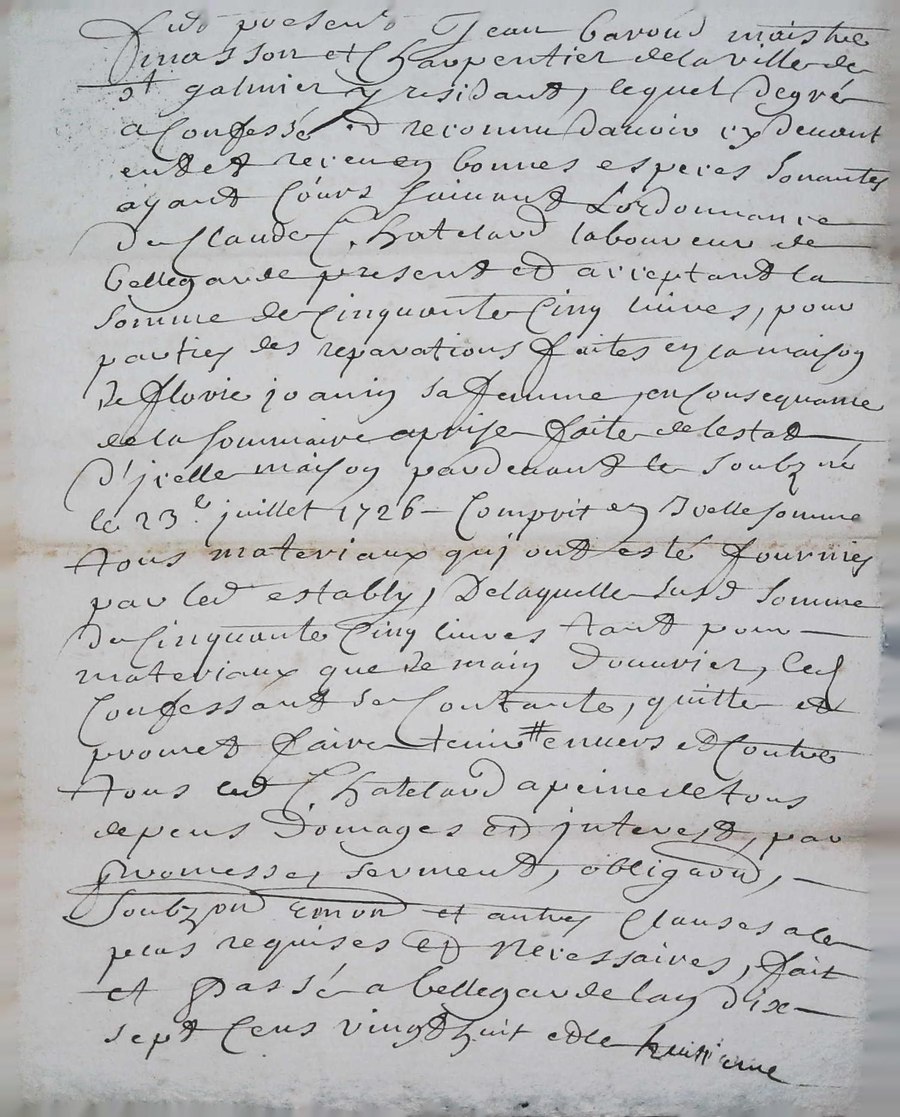 Fut present Jean Baroud maistre
masson et Charpentier de la Ville de
st galmier y residant, lequel degré
a Confessé et reconnu davoir cy devant
eu et receu en bonnes especes sonantes
ayant Cours suivant Lordonnance
De Claude Chatelard laboureur de
bellegarde present et acceptant la
somme de Cinquante Cinq livres, pour
parties des reparations faites en la maison
de flovie joanin sa femme, en Consequance
de la sommaire aprise faite de lestat
d'jcelle maison pardevant le soubzné
le 23e juillet 1726 - Comprit en Jcelle somme
tous materiaux quj ont esté fournies
par led estably, Delaquelle susd somme
de Cinquante Cinq livres tant pour
materiaux que de main Douvrier, led
Confessant se Contante, quitte et
promet faire tenir # envers et Contre
tous led Chatelard a peine de tous
depens Domages et jnterest, par
promesse, serment, obligaon,
soubzon renon et autres Clauses a ce
plus requises et Necessaires, fait
et passé a bellegarde lan dix
sept Cens vingt huit et le huittieme